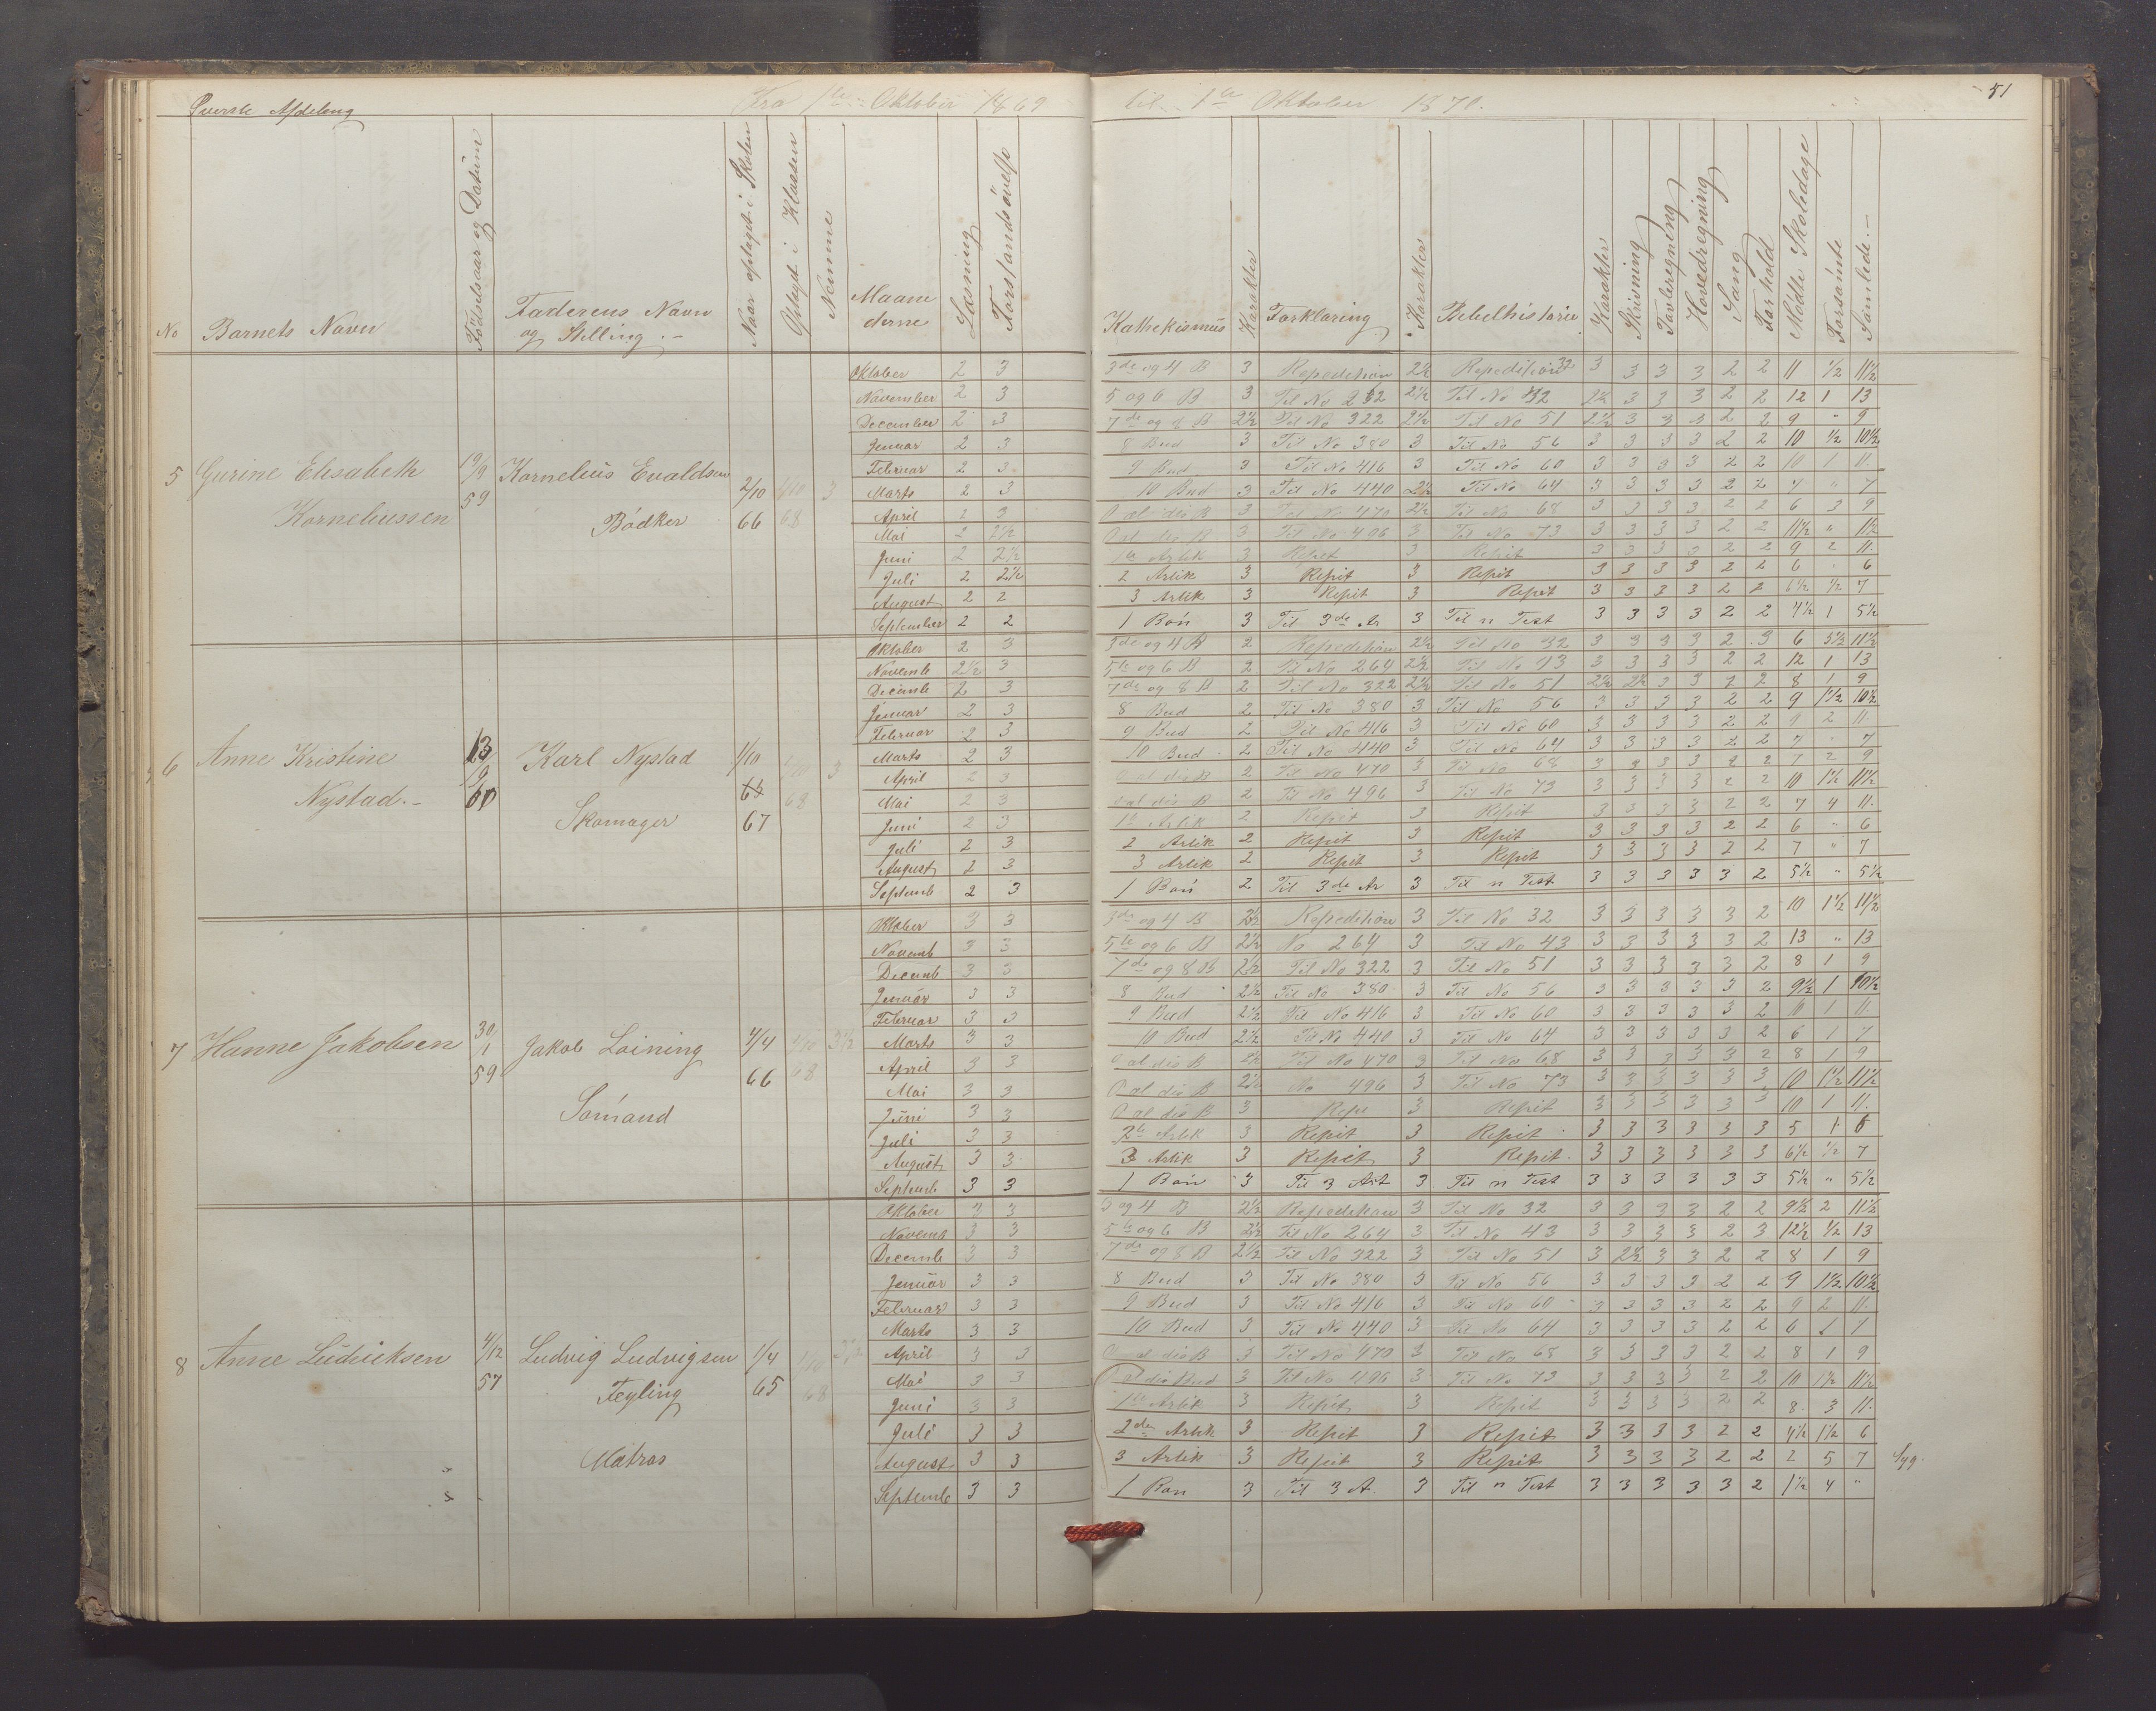 Øverste Afdeling
Fra 1ste Oktober 1869 til 1ste Oktober 1870.
51
No Barnets Navn Födselsaar og Datum Faderens Navn og Stilling.- Naar optaget i Skolen Oplyst i Klassen Nemme Maanederne Læsning Forstandsövelse Kathekismus Karakter Forklaring Karakter Bibelhistorie Karakter Skrivning Tavleregning Hovedregning Sang Forhold Mödte Skoledage Forsömte Samlede.-
5 Gurine Elisabeth Korneliussen 19/9 59 Kornelius Evaldsen Bödker 2/10 66 1/10 68 3
Oktober 2 3 3de og 4 B 3 Repedition 2½ Repedition 32 3 3 3 3 2 2 11 ½ 11½
November 2 3 5 og 6 B 3 Til No 262 2½ Til No 42 2½ 3 3 3 2 2 12 1 13
December 2 3 7de og 8 B 2½ Til No 322 2½ Til No 51 2½ 3 3 3 2 2 9 " 9
Januar 2 3 8 Bud 3 Til No 380 3 Til No 56 3 3 3 3 2 2 10 ½ 10½
Februar 2 3 9 Bud 3 Til No 416 3 Til No 60 3 3 3 3 2 2 10 1 11.
Marts 2 3 10 Bud 3 Til No 440 2½ Til No 64 3 3 3 3 2 2 7 " 7
April 2 3 O al dis B 3 Til No 470 2½ Til No 68 3 3 3 3 2 2 6 3 9
Mai 2 2½ O al dis B 3 Til No 496 3 Til No 73 3 3 3 3 2 2 11½ " 11½
Juni 2 2½ 1ste Artik 3 Repit 3 Repit 3 3 3 3 2 2 9 2 11
Juli 2 2½ 2 Artik 3 Repit 3 Repit 3 3 3 3 2 2 6 " 6
August 2 2 3 Artik 3 Repit 3 Repit 3 3 3 3 2 2 6½ ½ 7
September 2 2 1 Bön 3 Til 3de Ar 3 Til n Test 3 3 3 3 2 2 4½ 1 5½
6 Anne Kristine Nystad.- 13/9 60 Karl Nystad Skomager 1/10 67 1/10 68 3
Oktober 2 3 3de og 4 B 2 Repedition 2½ Til No 32 3 3 3 3 2 3 6 5½ 11½
Novemb 2½ 3 5te og 6 B 2 Til No 264 2½ Til No 43 3 3 3 3 2 2 12 1 13
Decemb 2 3 7de og 8 B 2 Til No 322 2½ Til No 51 2½ 2½ 3 3 2 2 8 1 9
Januar 2 3 8 Bud 2 Til No 380 3 Til No 56 3 3 3 3 2 2 9 1½ 10½
Februar 2 3 9 Bud 2 Til No 416 3 Til No 60 3 3 3 3 2 2 9 2 11
Marts 2 3 10 Bud 2 Til No 440 3 Til No 64 3 3 3 3 2 2 7 " 7
April 2 3 O al dis B 2 Til No 470 3 Til No 68 3 3 3 3 2 2 7 2 9
Mai 2 3 O al dis B 2 Til No 496 3 Til No 73 3 3 3 3 2 2 10 1½ 11½
Juni 2 3 1ste Artik 2 Repit 3 Repit 3 3 3 3 2 2 7 4 11.
Juli 2 3 2 Artik 2 Repit 3 Repit 3 3 3 3 2 2 6 " 6
August 2 3 3 Artik 2 Repit 3 Repit 3 3 3 3 2 2 7 " 7
Septemb 2 3 1 Bön 2 Til 3de Ar 3 Til n Test 3 3 3 3 3 2 5½ " 5½
7 Hanne Jakobsen 30/1 59 Jakob Loining Sömand 4/4 66 1/10 68 3½
Oktober 3 3 3de og 4 B 2½ Repedition 3 Til No 32 3 3 3 3 3 2 10 1½ 11½
Novemb 3 3 5te og 6 B 2½ No 264 3 Til No 43 3 3 3 3 3 2 13 " 13
Decemb 3 3 7de og 8 B 2½ Til No 322 3 Til No 51 3 3 3 3 3 2 8 1 9
Januar 3 3 8 Bud 2½ Til No 380 3 Til No 56 3 3 3 3 3 2 9½ 1 10½
Februar 3 3 9 Bud 2½ Til No 416 3 Til No 60 3 3 3 3 3 2 10 1 11.
Marts 3 3 10 Bud 2½ Til No 440 3 Til No 64 3 3 3 3 3 2 6 1 7
April 3 3 O al dis B 2½ Til No 470 3 Til No 68 3 3 3 3 3 2 8 1 9
Mai 3 3 O al dis B 2½ No 496 3 Til No 73 3 3 3 3 3 3 10 1½ 11½
Juni 3 3 O al dis B 3 Repit 3 Repit 3 3 3 3 3 3 10 1 11.
Juli 3 3 2de Artik 3 Repit 3 Repit 3 3 3 3 3 3 5 1 6
August 3 3 3 Artik 3 Repit 3 Repit 3 3 3 3 3 3 6½ ½ 7
Septemb 3 3 1 Bön 3 Til 3 Art 3 Til n Test 3 3 3 3 3 3 5½ " 5½
8 Anne Ludvicksen 4/12 57 Ludvig Ludvigsen Feyling Matros 1/4 65 1/10 68 3½
Oktober 3 3 3 og 4 B 2½ Repedition 3 Til No 32 3 3 3 3 2 2 9½ 2 11½
Novemb 3 3 5te og 6 B 2½ Til No 264 3 Til No 43 3 3 3 3 2 3 12½ ½ 13
Decemb 3 3 7de og 8 B 2½ Til No 322 3 Til No 51 3 2½ 3 3 2 2 8 1 9
Januar 3 3 8 Bud 3 Til No 380 3 Til No 56 3 3 3 3 2 2 9 1½ 10½
Februar 3 3 9 Bud 3 Til No 416 3 Til No 60 3 3 3 3 2 2 9 2 11.
Marts 3 3 10 Bud 3 Til No 440 3 Til No 64 3 3 3 3 2 2 6 1 7
April 3 3 O al dis B 3 Til No 470 3 Til No 68 3 3 3 3 2 2 8 1 9
Mai 3 3 O al dis Bud 3 Til No 496 3 Til No 73 3 3 3 3 2 2 10 1½ 11½
Juni 3 3 1ste Artik 3 Repit 3 Repit 3 3 3 3 2 2 8 3 11.
Juli 3 3 2de Artik 3 Repit 3 Repit 3 3 3 3 2 2 4½ 1½ 6
August 3 3 3 Artik 3 Repit 3 Repit 3 3 3 3 2 2 2 5 7 Syg.
Septemb 3 3 1 Bön 3 Til 3 A. 3 Til n Test 3 3 3 3 3 2 1½ 4 "